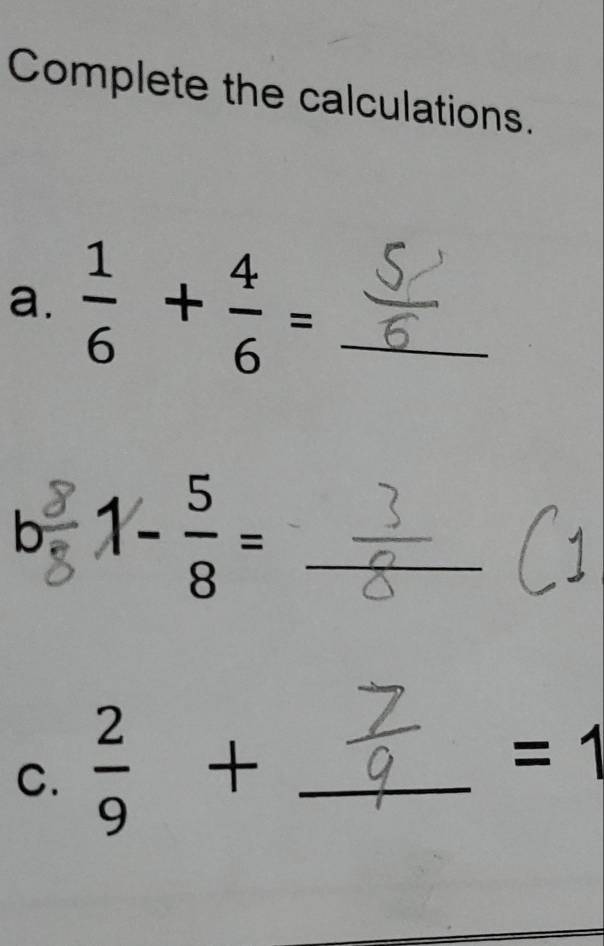 Complete the calculations.
a. 1/6 + 4/6 = 5/6
b 8/8 1 - 5/8 = 3/8 (1
c. 2/9 + 7/9 = 1